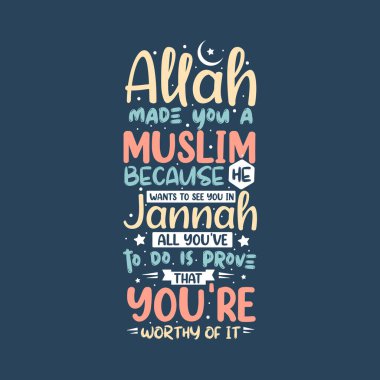 Allah
MADE YOU A
MUSLIM
BECAUSE HE
WANTS TO SEE YOU IN
Jannah
ALL YOU'VE
TO DO IS PROVE
THAT
YOU'RE
WORTHY OF IT